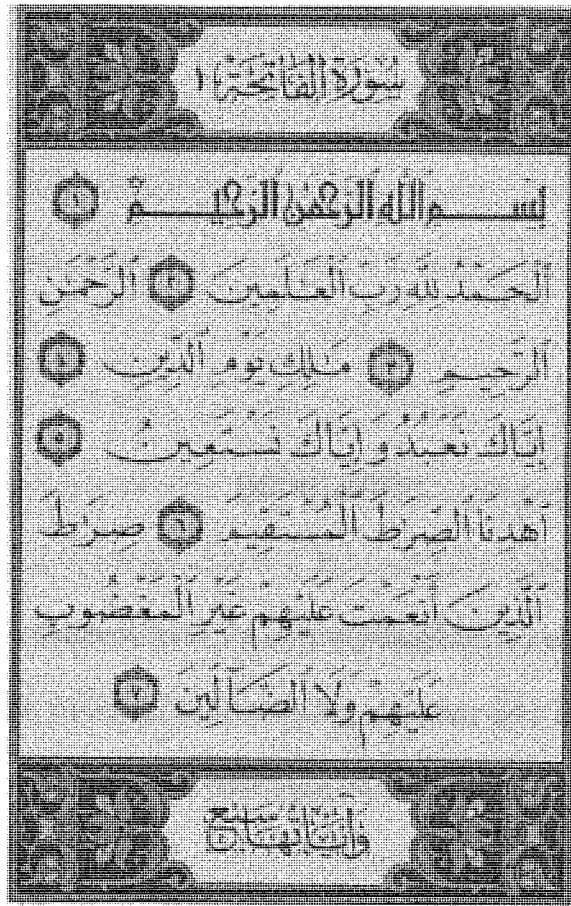 سُورَةُ الفَاتِحَةِ ١
بِسْمِ اللَّهِ الرَّحْمَٰنِ الرَّحِيمِ ١
ٱلْحَمْدُ لِلَّهِ رَبِّ ٱلْعَـٰلَمِينَ ٢ ٱلرَّحْمَـٰنِ
ٱلرَّحِيمِ ٣ مَـٰلِكِ يَوْمِ ٱلدِّينِ ٤
إِيَّاكَ نَعْبُدُ وَإِيَّاكَ نَسْتَعِينُ ٥
ٱهْدِنَا ٱلصِّرَٰطَ ٱلْمُسْتَقِيمَ ٦ صِرَٰطَ
ٱلَّذِينَ أَنْعَمْتَ عَلَيْهِمْ غَيْرِ ٱلْمَغْضُوبِ
عَلَيْهِمْ وَلَا ٱلضَّآلِّينَ ٧
وآياتها سبع